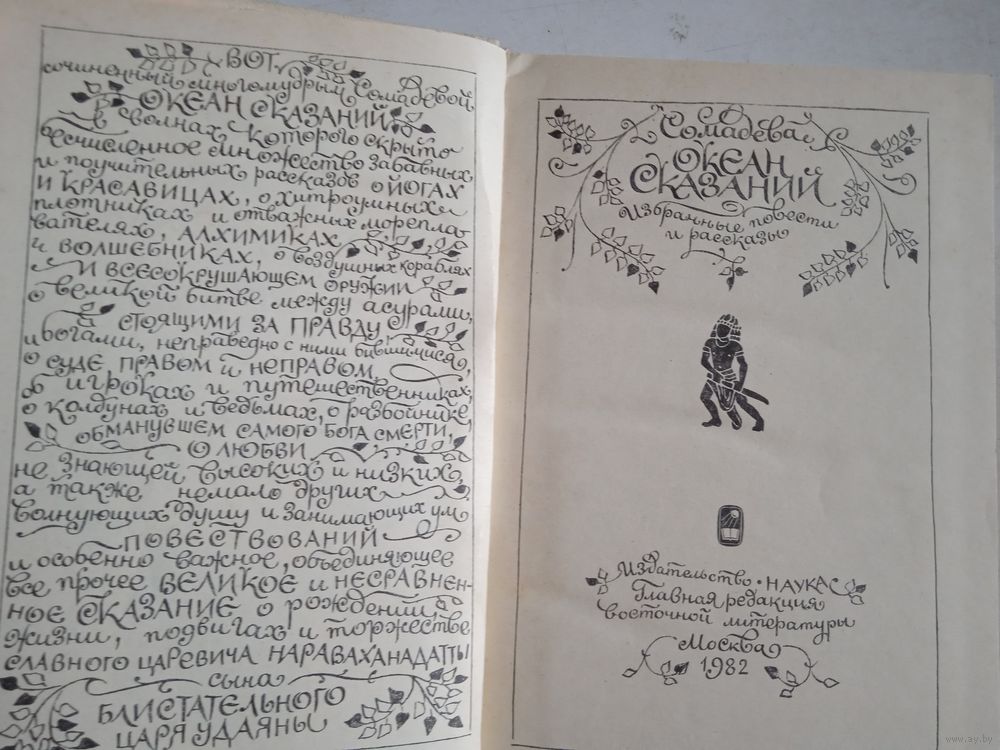 ВОТ
сочиненный многомудрым Сомадевой
ОКЕАН СКАЗАНИЙ,
в волнах которого скрыто
бесчисленное множество забавных
и поучительных рассказов о ЙОГАХ
И КРАСАВИЦАХ, о хитроумных
плотниках и отважных морепла-
вателях, АЛХИМИКАХ
и ВОЛШЕБНИКАХ, о воздушных кораблях
И ВСЕСОКРУШАЮЩЕМ ОРУЖИИ,
о великой битве между асурами,
СТОЯЩИМИ ЗА ПРАВДУ,
и богами, неправедно с ними бившимися,
о СУДЕ ПРАВОМ и НЕПРАВОМ,
об игроках и путешественниках,
о колдунах и ведьмах, о разбойнике,
ОБМАНУВШЕМ САМОГО БОГА СМЕРТИ,
О ЛЮБВИ,
не знающей высоких и низких,
а также немало других
волнующих душу и занимающих ум
ПОВЕСТВОВАНИЙ
и особенно важное, объединяющее
все прочее ВЕЛИКОЕ и НЕСРАВНЕН-
НОЕ СКАЗАНИЕ о рождении,
жизни, подвигах и торжестве
СЛАВНОГО ЦАРЕВИЧА НАРАВАХАНАДАТТЫ
сына
БЛИСТАТЕЛЬНОГО
ЦАРЯ УДАЯНЫ
Сомадева
ОКЕАН
СКАЗАНИЙ
Избранные повести
и рассказы
Издательство • НАУКА •
Главная редакция
восточной литературы
Москва
1982
www.ay.by